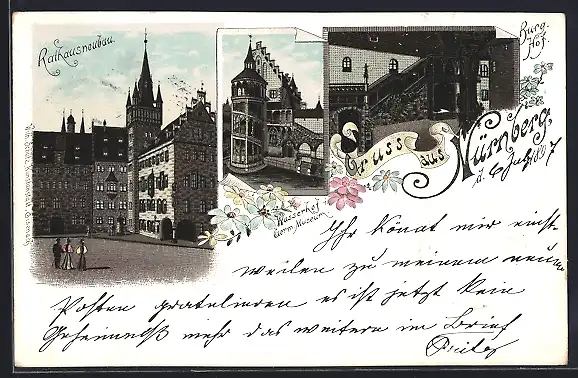 Rathausneubau.
Burg-
Hof.
Gruss aus
Nürnberg,
d. 6 Juli 1897
Wasserhof
Germ. Museum
Ihr Könnt mir einst-
weilen zu meinem neuen
Posten gratulieren es ist jetzt kein
Geheimniß mehr das weitere im Brief